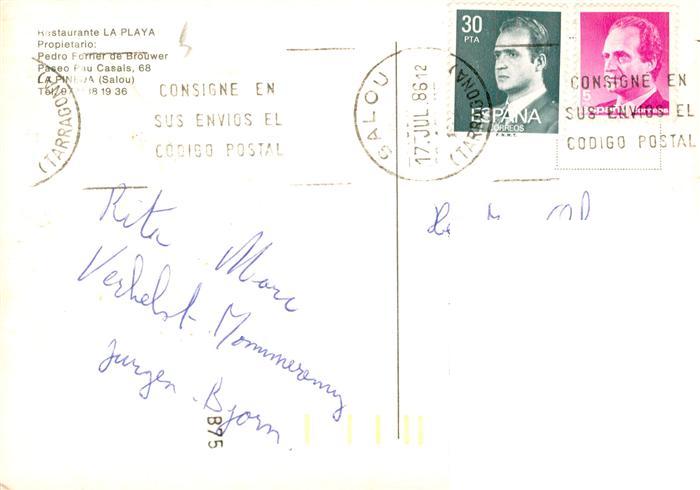 Restaurante LA PLAYA
Propietario:
Pedro Forner de Brouwer
Paseo Pau Casals, 68
LA PINEDA (Salou)
38 19 36
(TARRAGONA)
CONSIGNE EN
SUS ENVIOS EL
CODIGO POSTAL
SALOU
17.JUL 86 12
(TARRAGONA)
30
PTA
ESPAÑA
CORREOS
F.N.M.T.
5
CONSIGNE EN
SUS ENVIOS EL
CODIGO POSTAL
Rita Marc
Verhelst-Mommerency
Jurgen-Bjorn.
B75